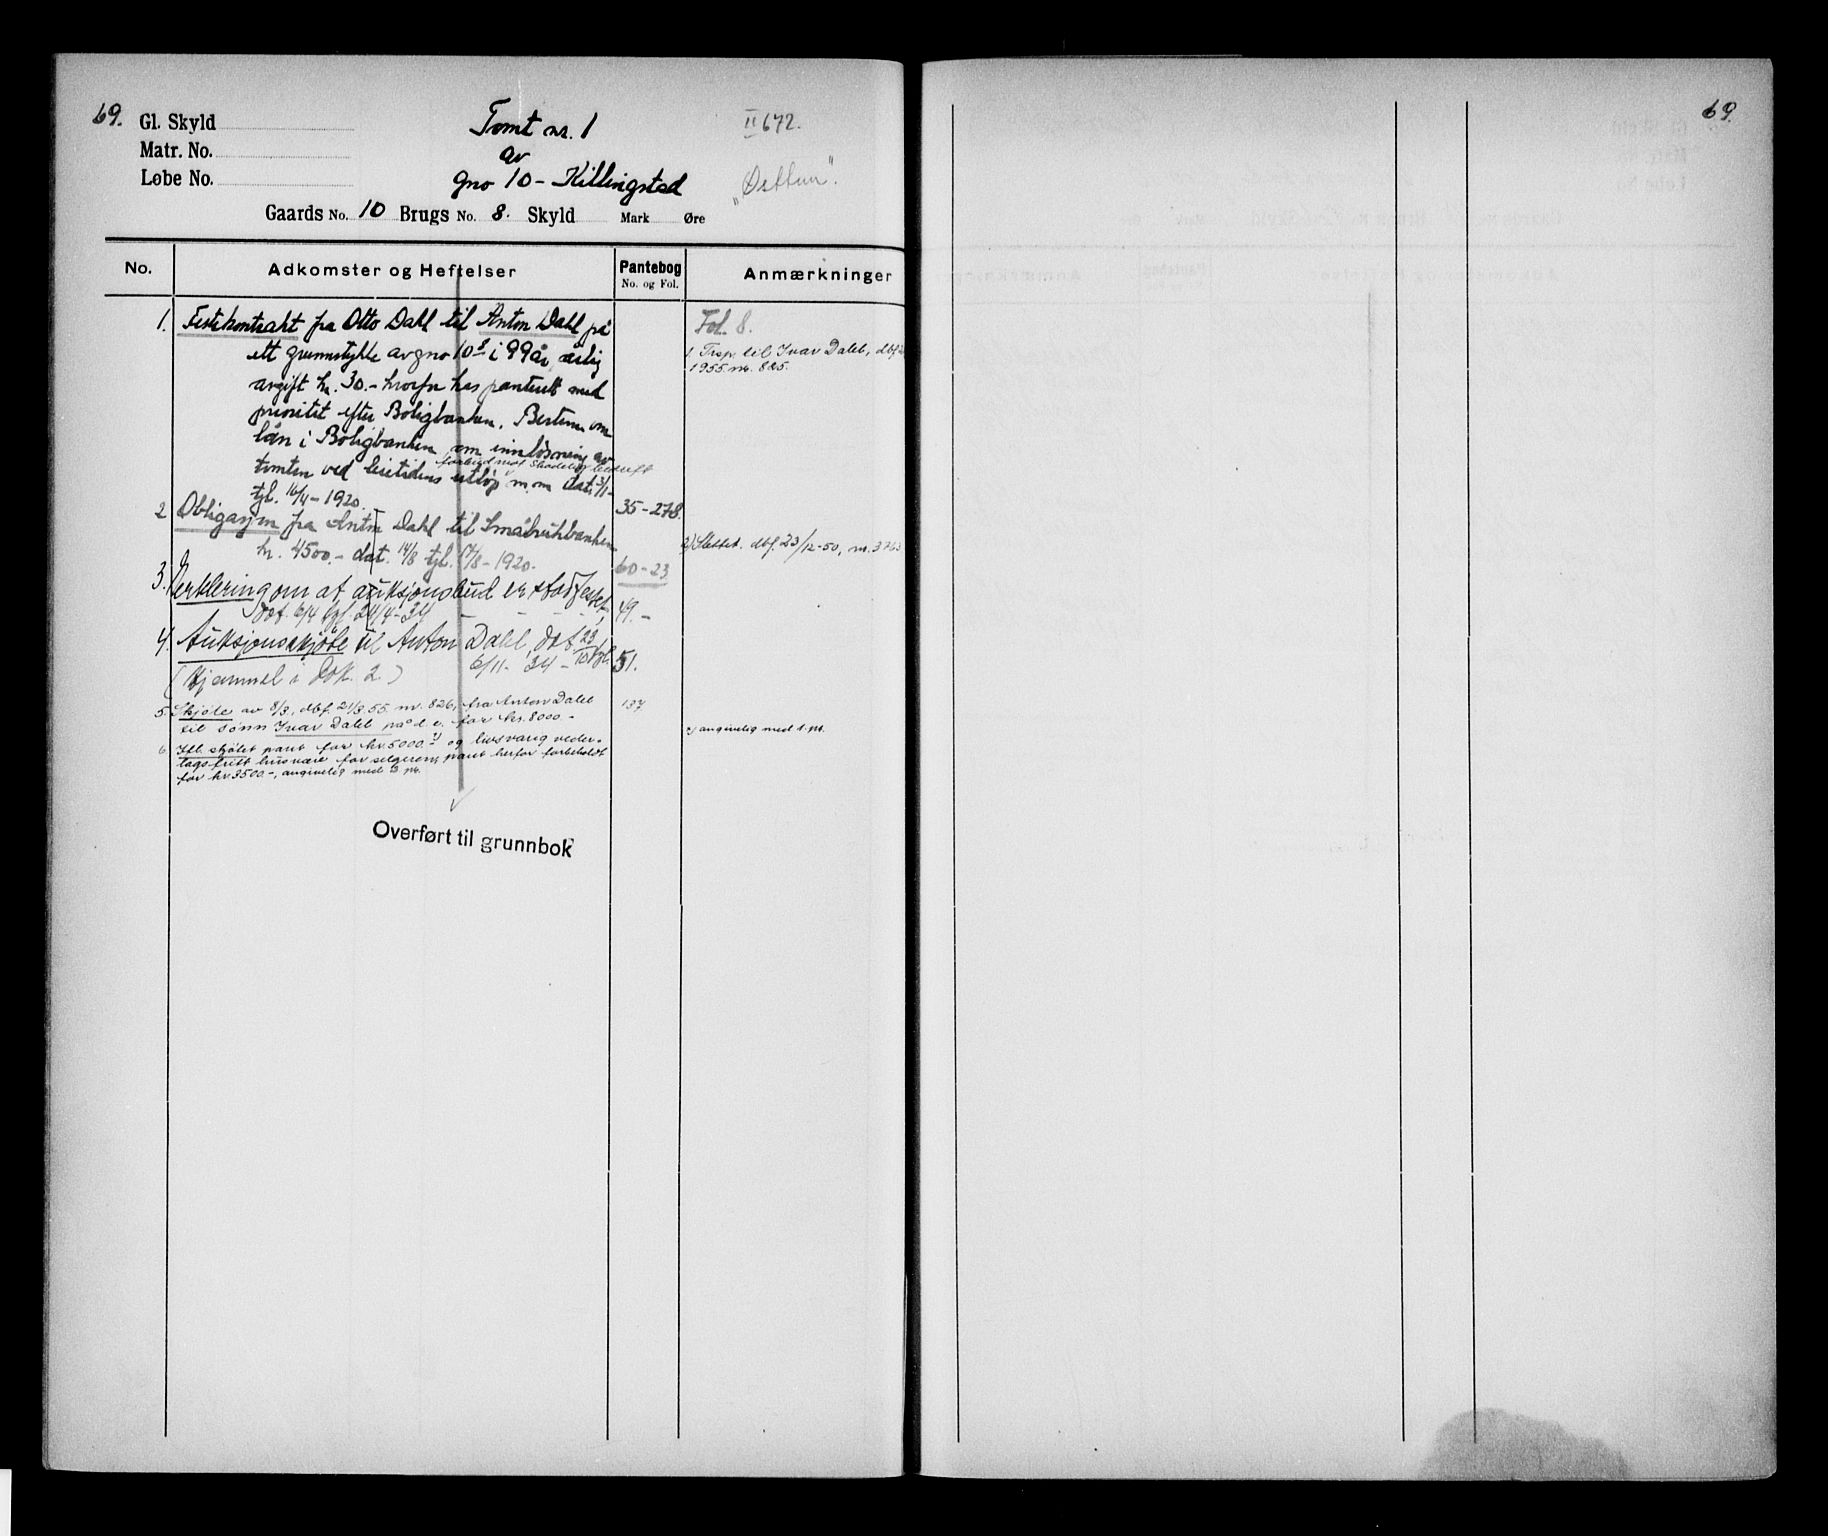 69. Gl. Skyld
Matr. No.
Løbe No.
Tomt nr. 1
av
gno 10 - Killingstad
II 672.
"Østtun".
Gaards No. 10 Brugs No. 8. Skyld Mark Øre
No. Adkomster og Heftelser Pantebog No. og Fol. Anmærkninger
1. Festekontrakt fra Otto Dahl til Anton Dahl på
ett grunnstykke av gno 10 8 i 99 år, årlig
avgift kr. 30.- hvorfor has panterett med
prioritet efter Boligbanken. Bestem. om
lån i Boligbanken, om innløsning av
forbud mot skadelig bedrift
tomten ved leietidens utløp m.m dat. 3/1-
tgl. 16/4-1920. 35-278.
Fol. 8.
1. Trsp. til Ivar Dahl, dbf.
1955. nr. 825.
2 Obligasjon fra Anton Dahl til Småbrukbanken
kr. 4500.- dat. 14/8 tgl. 17/8-1920. 60-23
2) Slettet. dbf. 23/12-50, nr. 3763
3. Erklæring om at auksjonsbud er stadfestet,
dat. 6/4 tgl. 24/4-34 49.-
4. Auksjonsskjøte til Anton Dahl, dat. 23/10 tgl.
6/11-34- 51.
(Hjemmel i dok. 2)
5. Skjøte av 8/3, dbf. 21/3.55. nr. 826, fra Anton Dahl 137
til sønn Ivar Dahl på d.e. for kr. 8000.-
6. Ifl. skjøtet pant for kr. 5000.- x) og livsvarig veder-
lagsfritt husvære for selgeren, pant herfor forbeholdt
for kr. 3500.-, angivelig med 2. pr.
x) angivelig med 1. pr.
Overført til grunnbok
69.